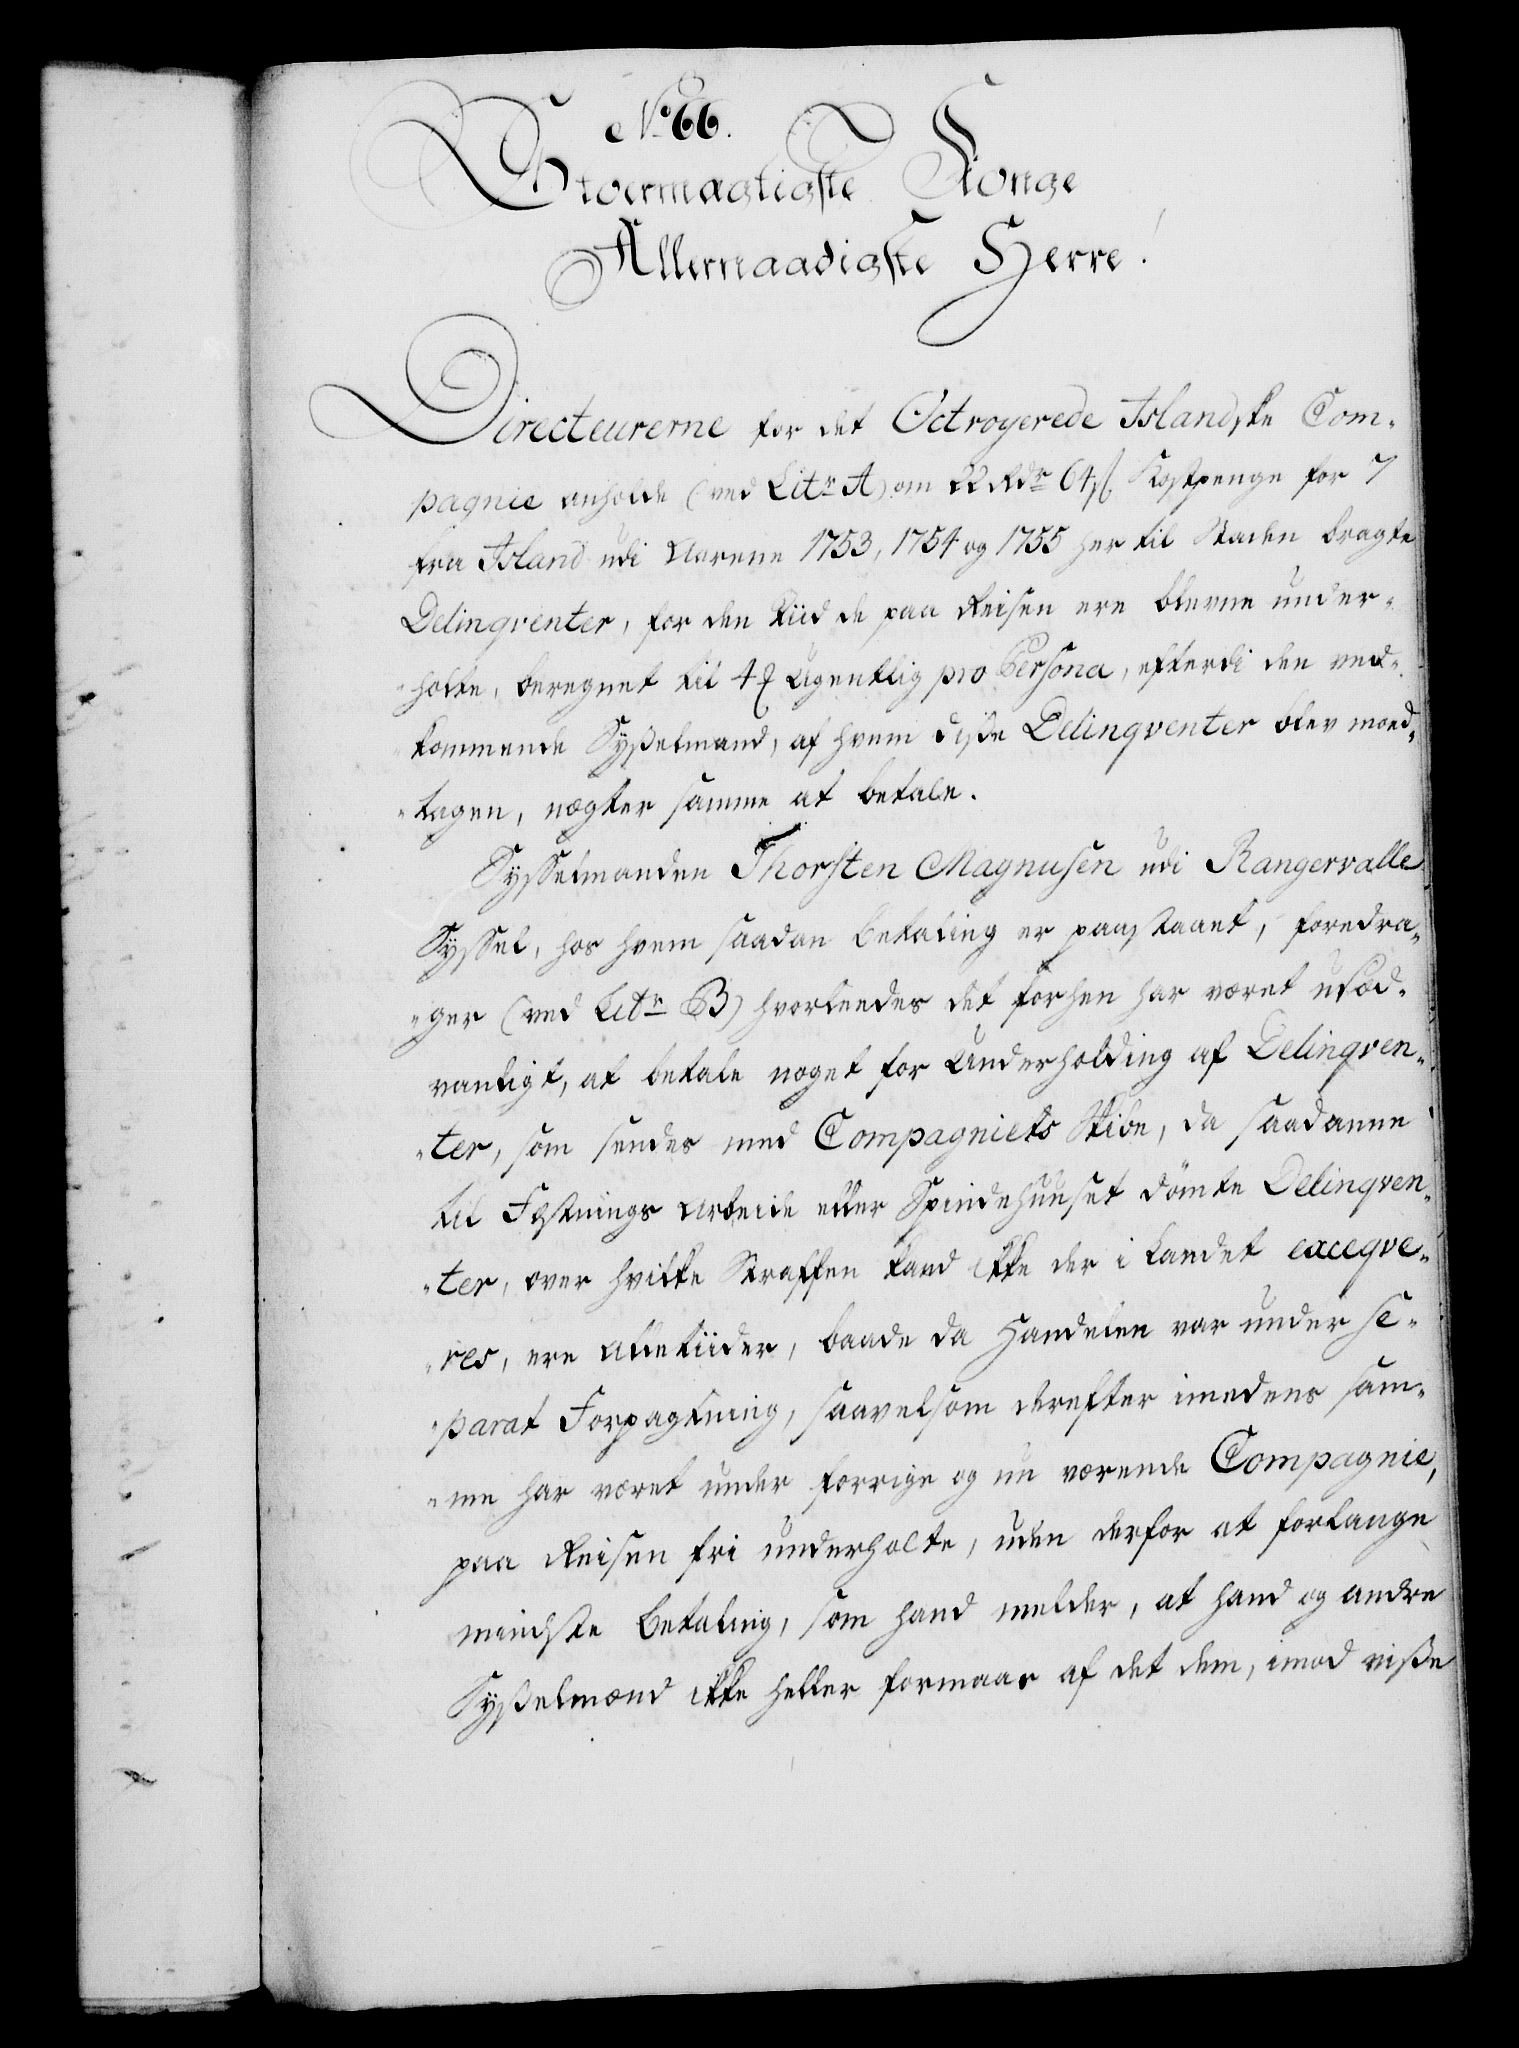 No 66.
Stormægtigste Konge
Allernaadigste Herre!
Directeurerne for det Octroyerede Islandske Com-
pagnie anholde (ved Litr. A) om 22 Rdr. 64 ß Kostpenge for 7
fra Island udi Aarene 1753, 1754 og 1755 her til Staden bragte
Delinqventer, for den Tiid de paa Reisen ere blevne under-
holte, beregnet til 4 ug.entlig pro Persona, efterdi den ved-
kommende Sysselmand, af hvem disse Delinqventer blev mod-
tagen, nægter samme at betale.
Sysselmanden Thorsten Magnusen udi Rangervalle
Syssel, hos hvem saadan betaling er paastaaet, foredra-
ger (ved Litr. B) hvorledes det forhen har været usæd-
vanligt, at betale noget for Underholding af Delinqven-
ter, som sendes med Compagniets Skibe, da saadanne
til Fæstnings Arbeide eller Spindehuuset dömte Delinqven-
ter, over hvilke Straffen kand ikke der i Landet exceqve-
res, ere alletiider, baade da Handelen var under se-
parat Forpagtning, saavelsom derefter imedens sam-
me har været under forrige og nu værende Compagnie,
paa Reisen fri underholte, uden derfor at forlange
mindste betaling, som hand melder, at hand og andre
Sysselmænd ikke heller formaar af det dem, imod visse